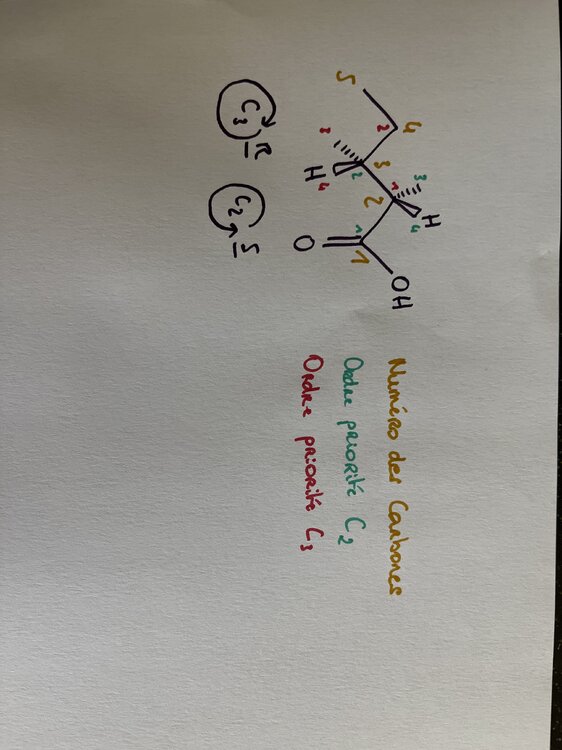 3 H
4 4
OH
2 3 1
2
5 2 1 1
3 H 4
O
C₃ R
C₂ S
Numéro des Carbones
Ordre priorité C₂
Ordre priorité C₃